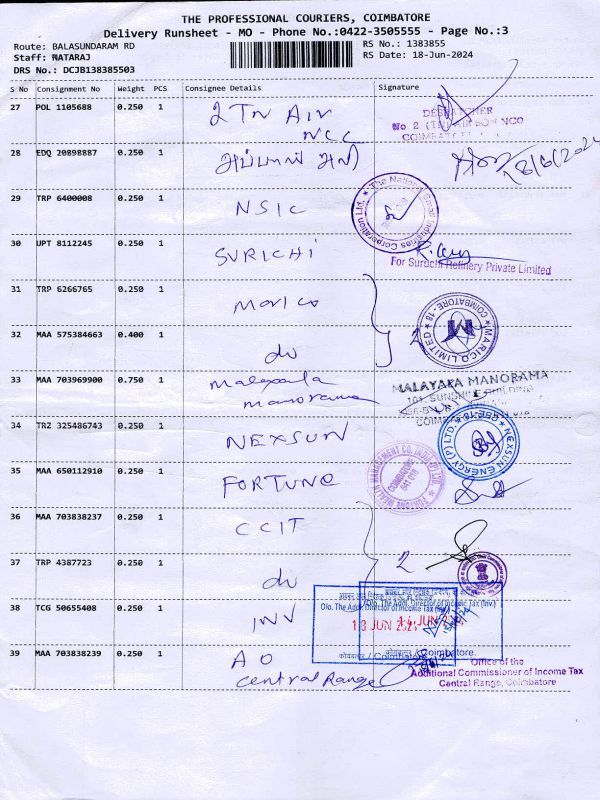 THE PROFESSIONAL COURIERS, COIMBATORE
Delivery Runsheet - MO - Phone No.:0422-3505555 - Page No.:3
Route: BALASUNDARAM RD
RS No.: 1383855
Staff: NATARAJ
RS Date: 18-Jun-2024
DRS No.: DCJB138385503
S No Consignment No Weight PCS Consignee Details Signature
27 POL 1105688 0.250 1 2 TN AIR
NCC
DESPATCHER
No 2 (TN) AIR NCC
COIMBATORE
28 EDQ 20898887 0.250 1 அப்பாஸ் அலி
18/6/2024
29 TRP 6400008 0.250 1 NSIC
The National Small Industries Corporation Ltd.
30 UPT 8112245 0.250 1 SURICHI
For Suruchi Refinery Private Limited
31 TRP 6266765 0.250 1 Marico
MARICO LIMITED
COIMBATORE - 18
32 MAA 575384663 0.400 1 do
2
33 MAA 703969900 0.750 1 Malayala
manorama
MALAYALA MANORAMA
101, SUNSHINE BUILDING
34 TRZ 325486743 0.250 1 NEXSUN
NEXSUN ENERGY (P) LTD.
35 MAA 650112910 0.250 1 FORTUNE
FORTUNE WEALTH MANAGEMENT CO. INDIA (P) LTD.
COIMBATORE
641 018
36 MAA 703838237 0.250 1 CCIT
2
37 TRP 4387723 0.250 1 do
O/o. The Addl. Director of Income Tax (Inv.)
38 TCG 50655408 0.250 1 INV
18 JUN 2024
कोयंबतूर / Coimbatore.
39 MAA 703838239 0.250 1 AO
Central Range
Office of the
Additional Commissioner of Income Tax
Central Range, Coimbatore